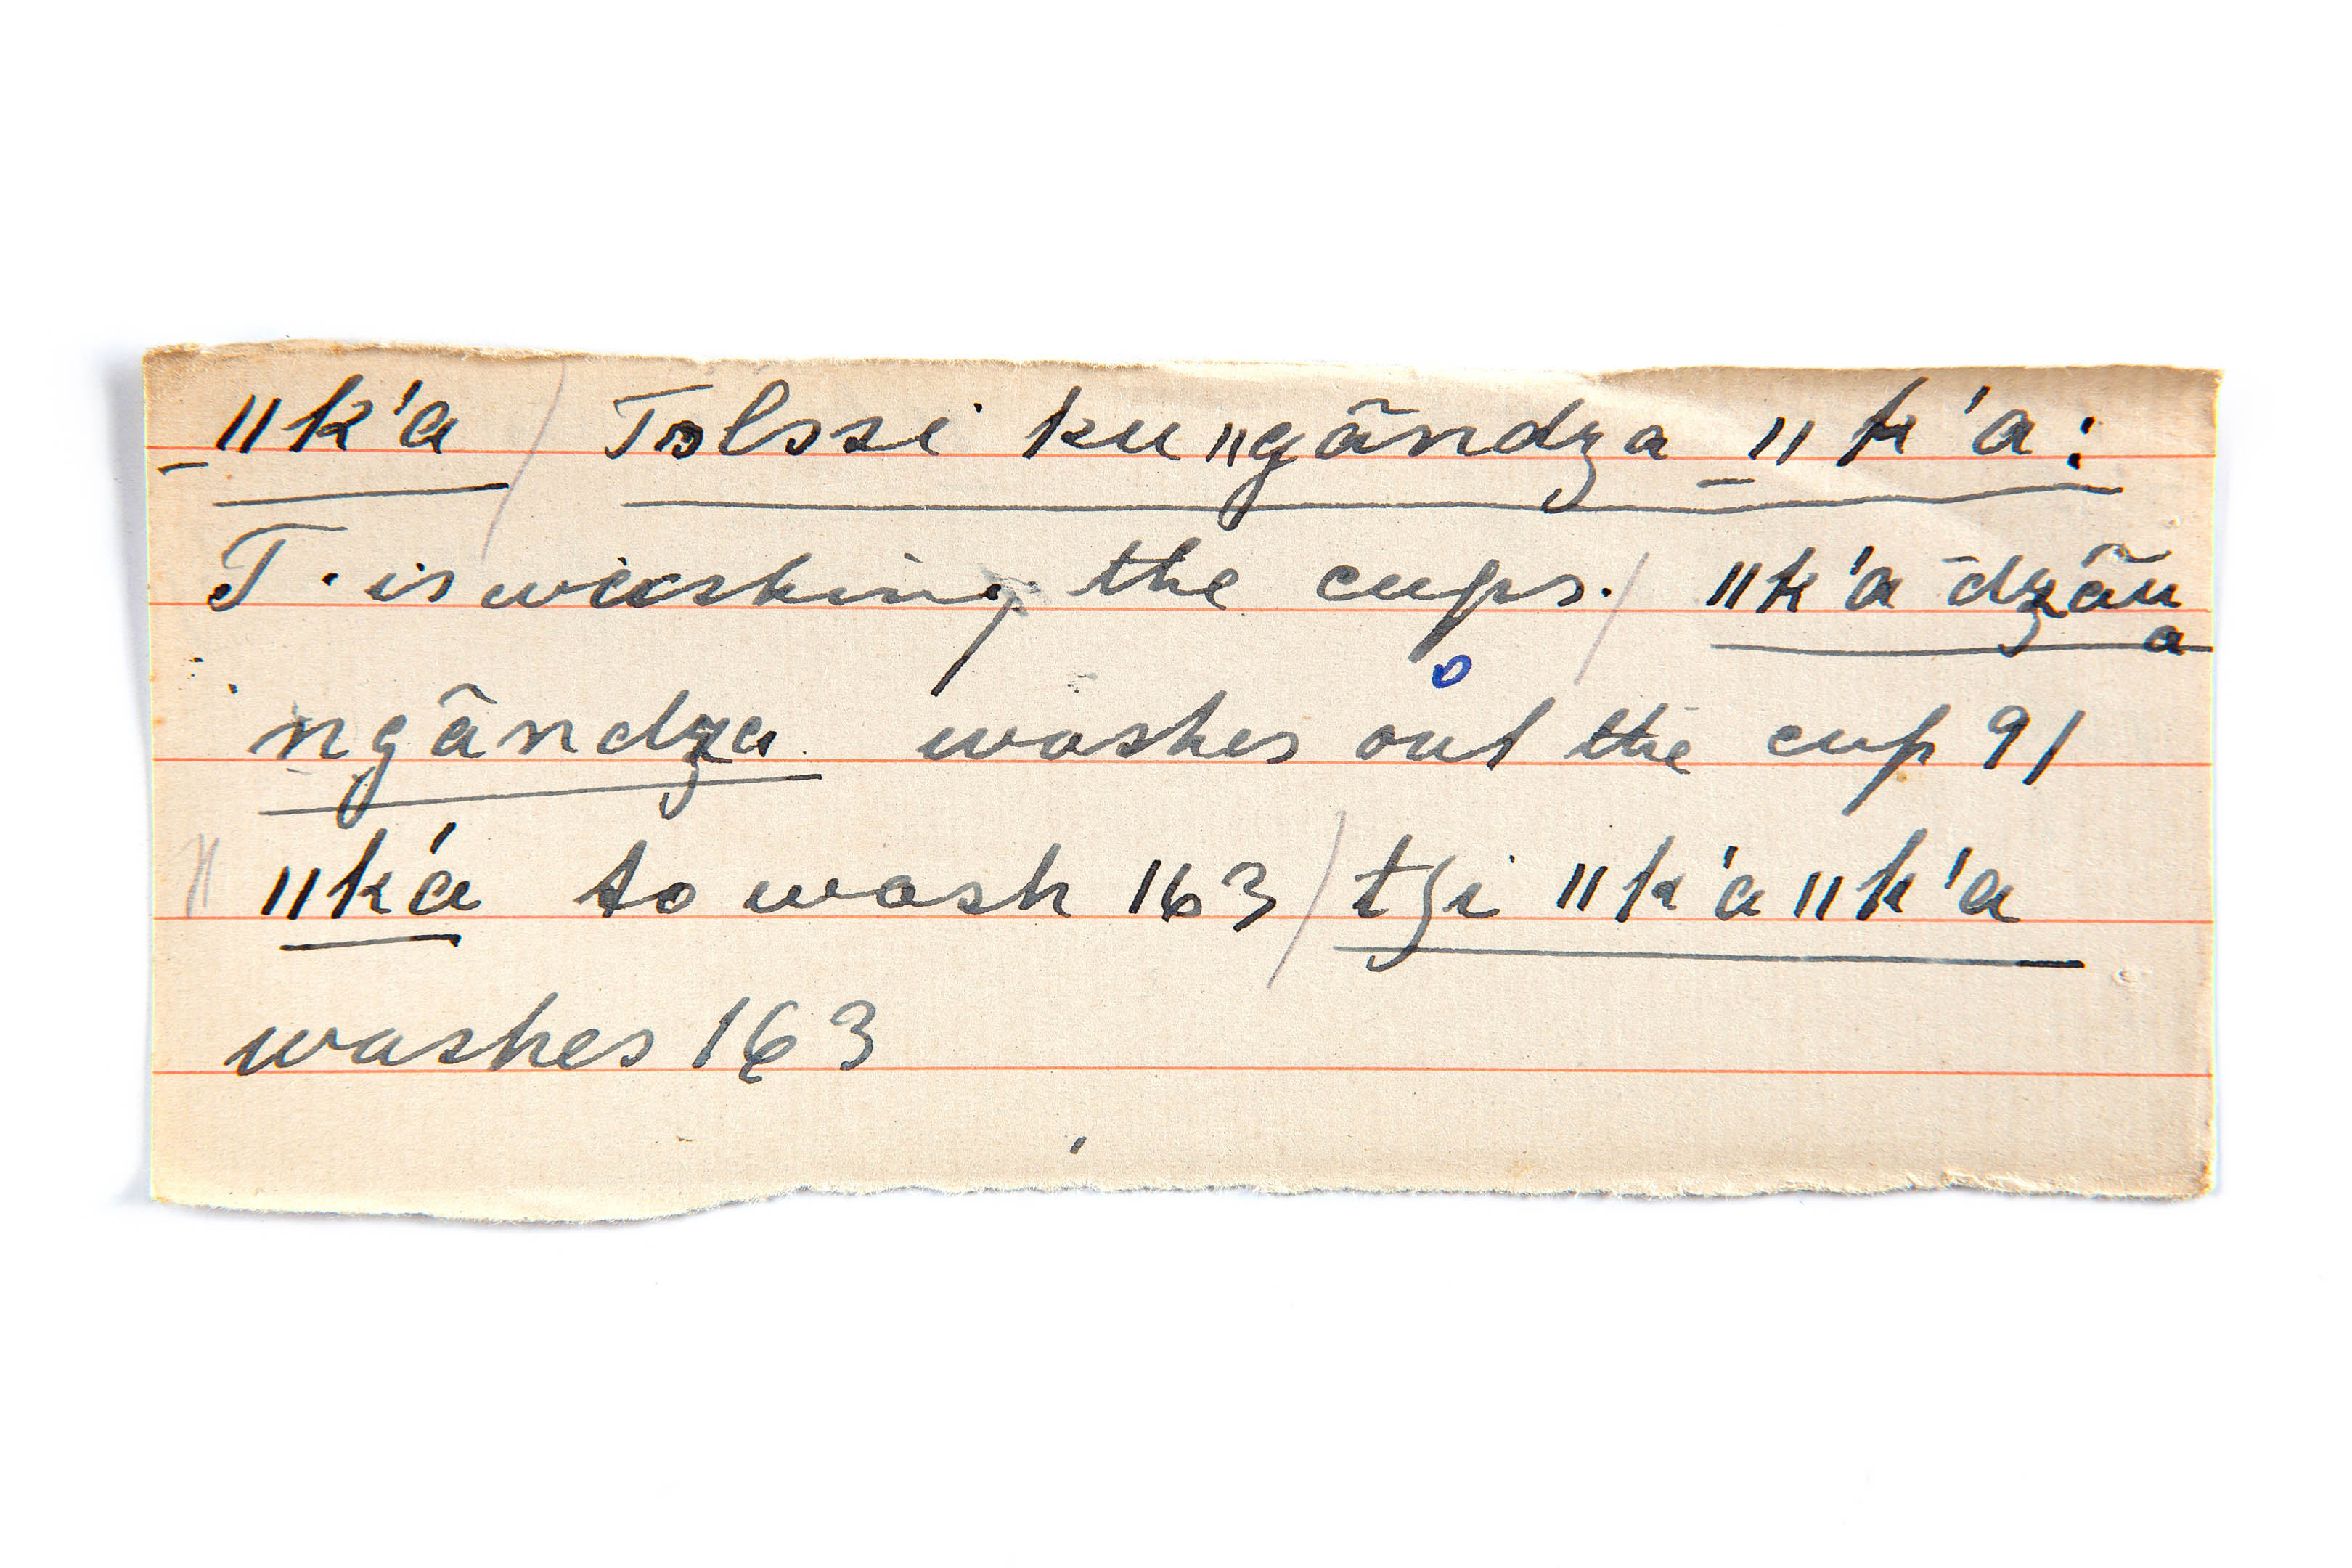 _ǁk'a / Tolssi ku ǁgãndza _ǁk'a:
T. is washing the cups. / ǁk'a ¯dzãu
a
ngãndza washes out the cup 91
ǁ ǁk'a to wash 163 / tʒi ǁk'a ǁk'a
washes 163